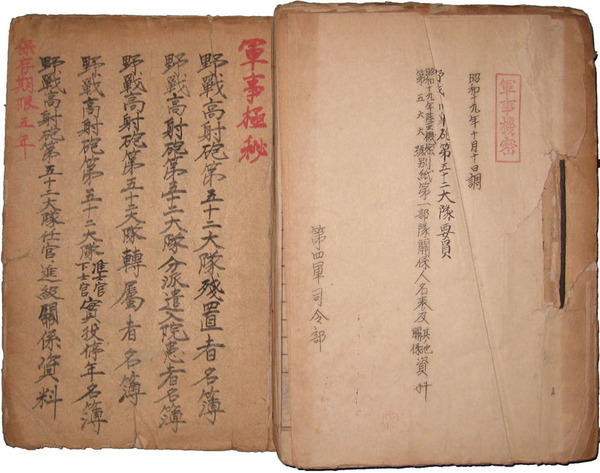 軍事機密
昭和十九年十月十日調
第五十二大隊要員
昭和十九年陸亜機密
第五六六號
別紙第一部隊關係人名表及其他關係資料
第四軍司令部
軍事極秘
野戰高射砲第五十二大隊殘置者名簿
野戰高射砲第五十二大隊分派遣入院患者名簿
野戰高射砲第五十二大隊轉屬者名簿
野戰高射砲第五十二大隊准士官下士官實役停年名簿
野戰高射砲第五十二大隊任官、進級關係資料
保存期限五年